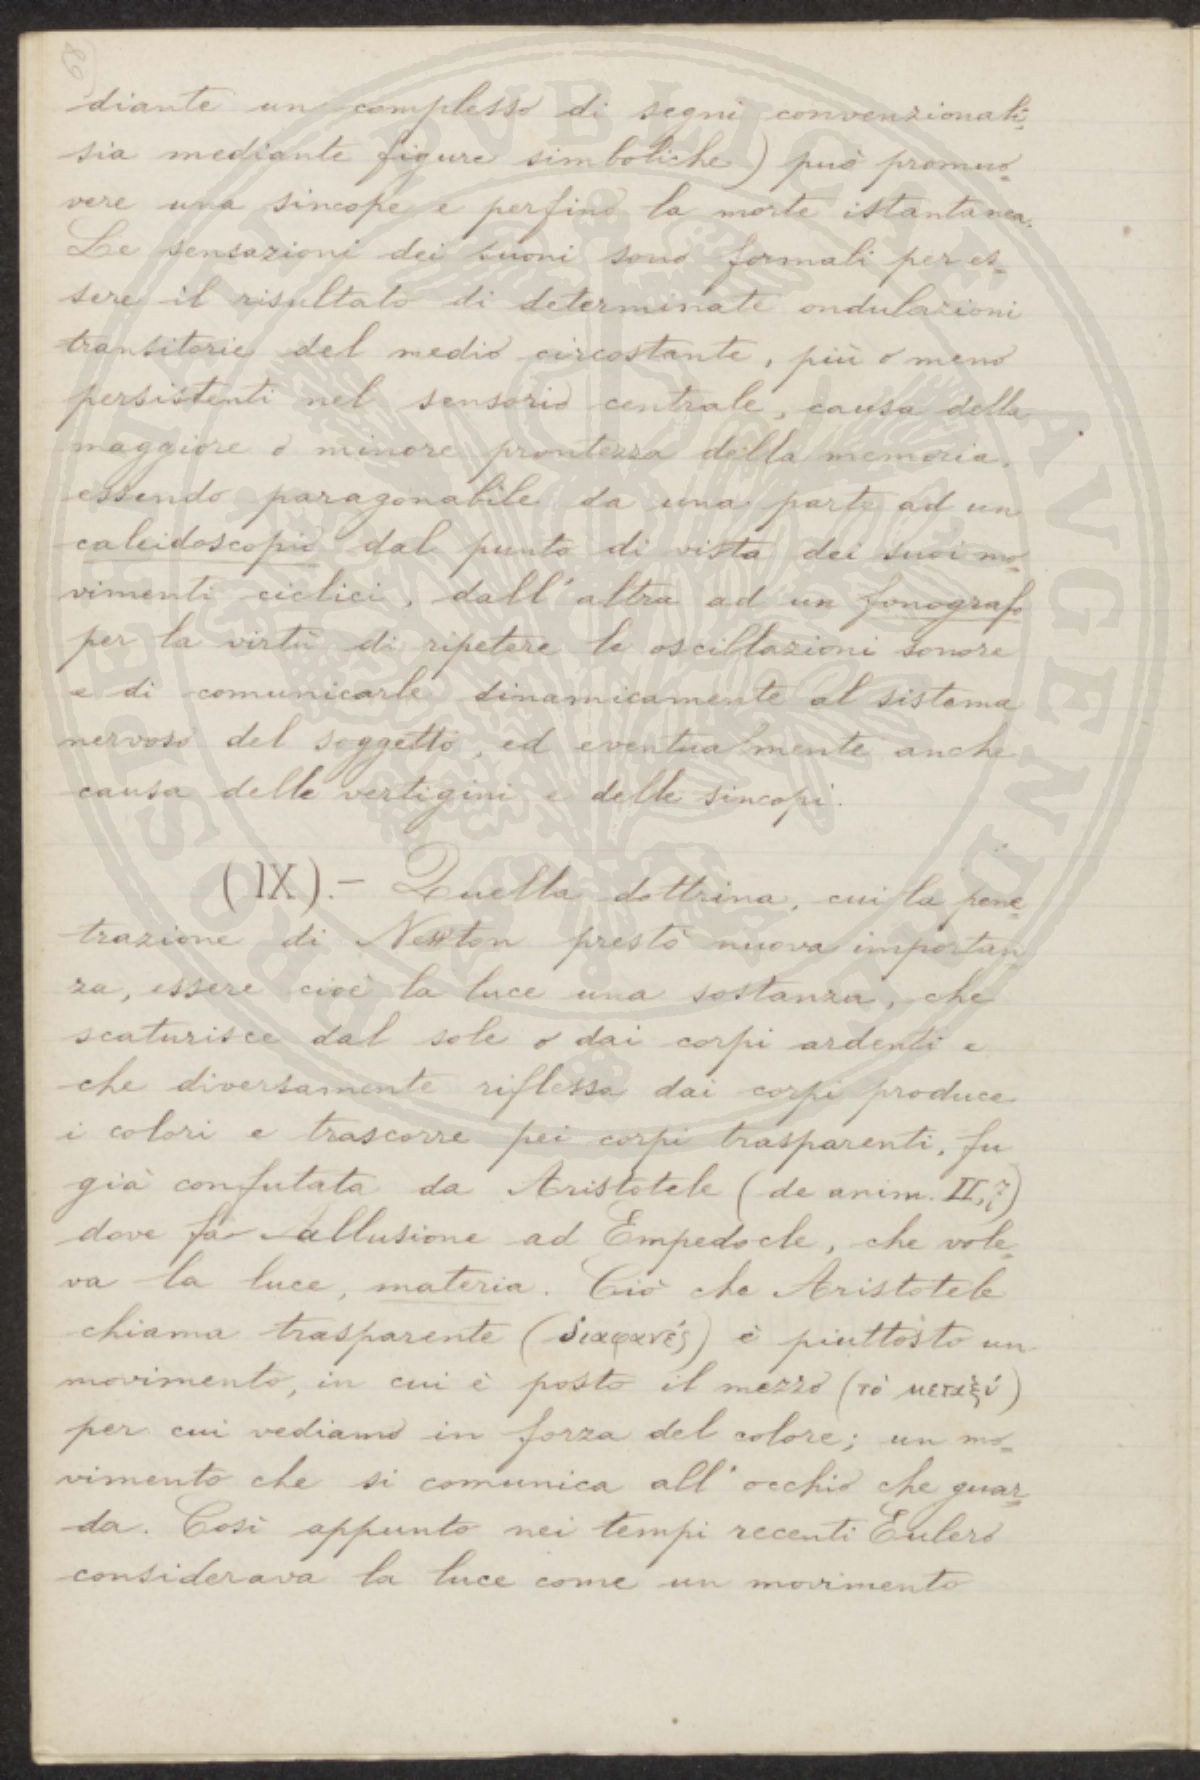 diante un complesso di segni convenzionali=
sia mediante figure simboliche) può promuo=
vere una sincope e perfino la morte istantanea.
Le sensazioni dei suoni sono formali per es=
sere il risultato di determinate ondulazioni
transitorie del medio circostante, più o meno
persistenti nel sensorio centrale, causa della
maggiore o minore prontezza della memoria,
essendo paragonabile da una parte ad un
caleidoscopio dal punto di vista dei suoi mo=
vimenti ciclici, dall'altra ad un fonografo
per la virtù di ripetere le oscillazioni sonore
e di comunicarle dinamicamente al sistema
nervoso del soggetto, ed eventualmente anche
causa delle vertigini e delle sincopi.
(IX).- Quella dottrina, cui la pene=
trazione di Newton prestò nuova importan=
za, essere cioè la luce una sostanza, che
scaturisce dal sole o dai corpi ardenti e
che diversamente riflessa dai corpi produce
i colori e trascorre pei corpi trasparenti, fu
già confutata da Aristotele (de anim. II, 7)
dove fa allusione ad Empedocle, che vole=
va la luce, materia. Ciò che Aristotele
chiama trasparente (διαφανές) è piuttosto un
movimento, in cui è posto il mezzo (τὸ μεταξύ)
per cui vediamo in forza del colore; un mo=
vimento che si comunica all'occhio che guar=
da. Così appunto nei tempi recenti Eulero
considerava la luce come un movimento